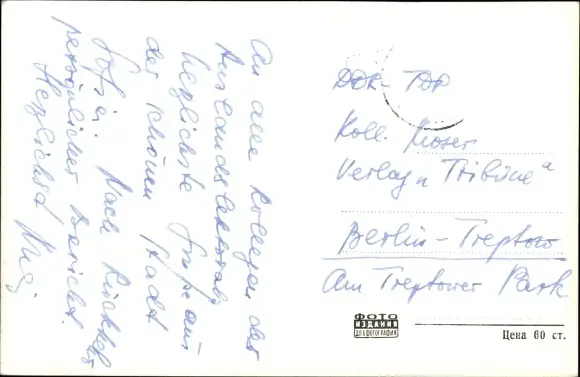 An alle Kollegen des
Auslandslektorats
herzlichste Grüße aus
der schönen Stadt
Sofia. Nach Rückkehr
persönlicher Bericht.
Herzlichst
DDR - TDP
Koll. Moser
Verlag "Tribüne"
Berlin - Treptow
Am Treptower Park
ФОТО
ИЗДАНИЯ
ДП БЪЛГ. ФОТОГРАФИЯ
Цена 60 ст.